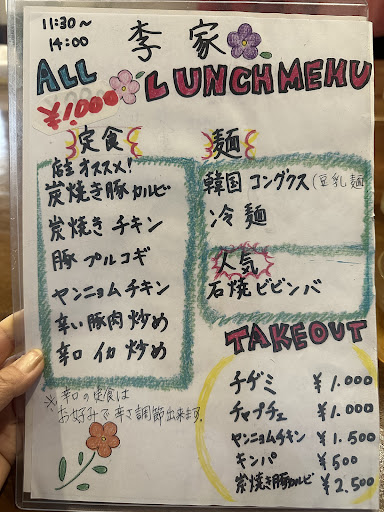 11:30～
14:00
李家
ALL LUNCH MENU
¥1,000
定食
店主オススメ!
炭焼き豚カルビ
炭焼きチキン
豚プルコギ
ヤンニョムチキン
辛い豚肉炒め
辛口イカ炒め
※辛口の定食は
お好みで辛さ調節出来ます.
麺
韓国コングクス(豆乳麺
冷麺
人気
石焼ビビンバ
TAKEOUT
チヂミ ¥1.000
チャプチェ ¥1.000
ヤンニョムチキン ¥1.500
キンパ ¥500
炭焼き豚カルビ ¥2.500